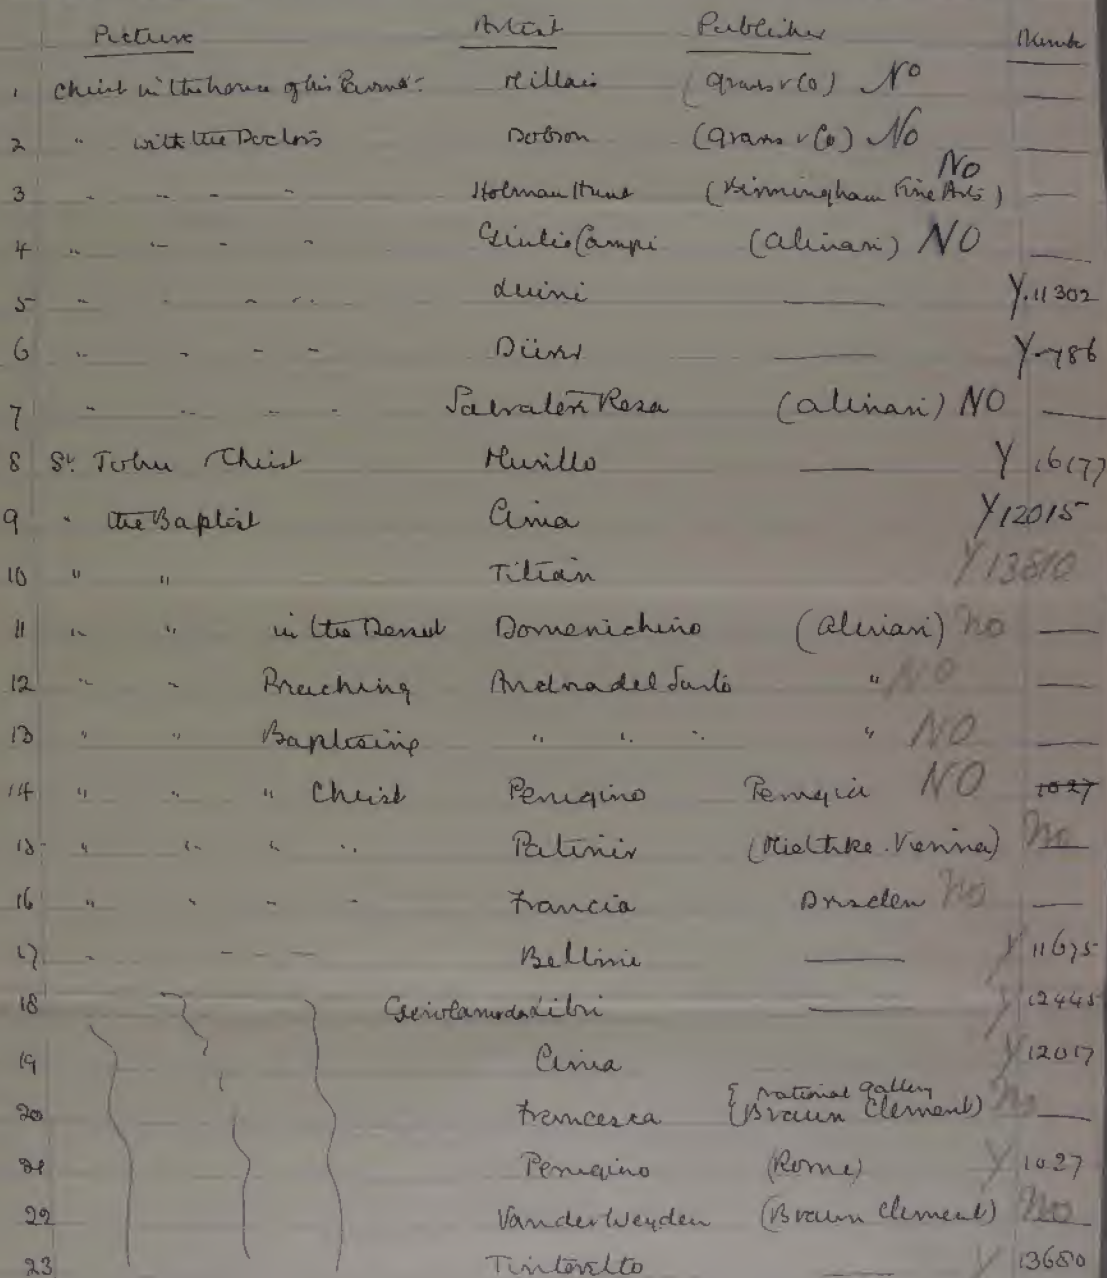 Picture Artist Publisher Number
1 Christ in the house of his Parents - Millais (Graves & Co) No
2 " with the Doctors Dobson (Graves & Co) No
3 " " " " Holman Hunt (Birmingham Fine Arts) No
4 " " " " Giulio Campi (Alinari) NO
5 " " " " Luini — Y.11302
6 " " " " Dürer — Y-786
7 " " " " Salvator Rosa (Alinari) NO —
8 St. John & Christ Murillo — Y 16177
9 " the Baptist Cima Y 12015
10 " " Titian Y 13810
11 " " in the Desert Domenichino (Alinari) No —
12 " " Preaching Andrea del Sarto " NO —
13 " " Baptising " " " " NO —
14 " " " Christ Perugino Perugia NO 1027
15 " " " " Patinir (Miethke. Vienna) No
16 " " " " Francia Dresden No —
17 " " " " Bellini — Y 11675
18 Gerolamo da Libri — Y 12445
19 Cima Y 12017
20 Francesca { National Gallery (Braun Clement) No —
21 Perugino (Rome) Y 1027
22 Van der Weyden (Braun Clement) No
23 Tintoretto — Y 13680